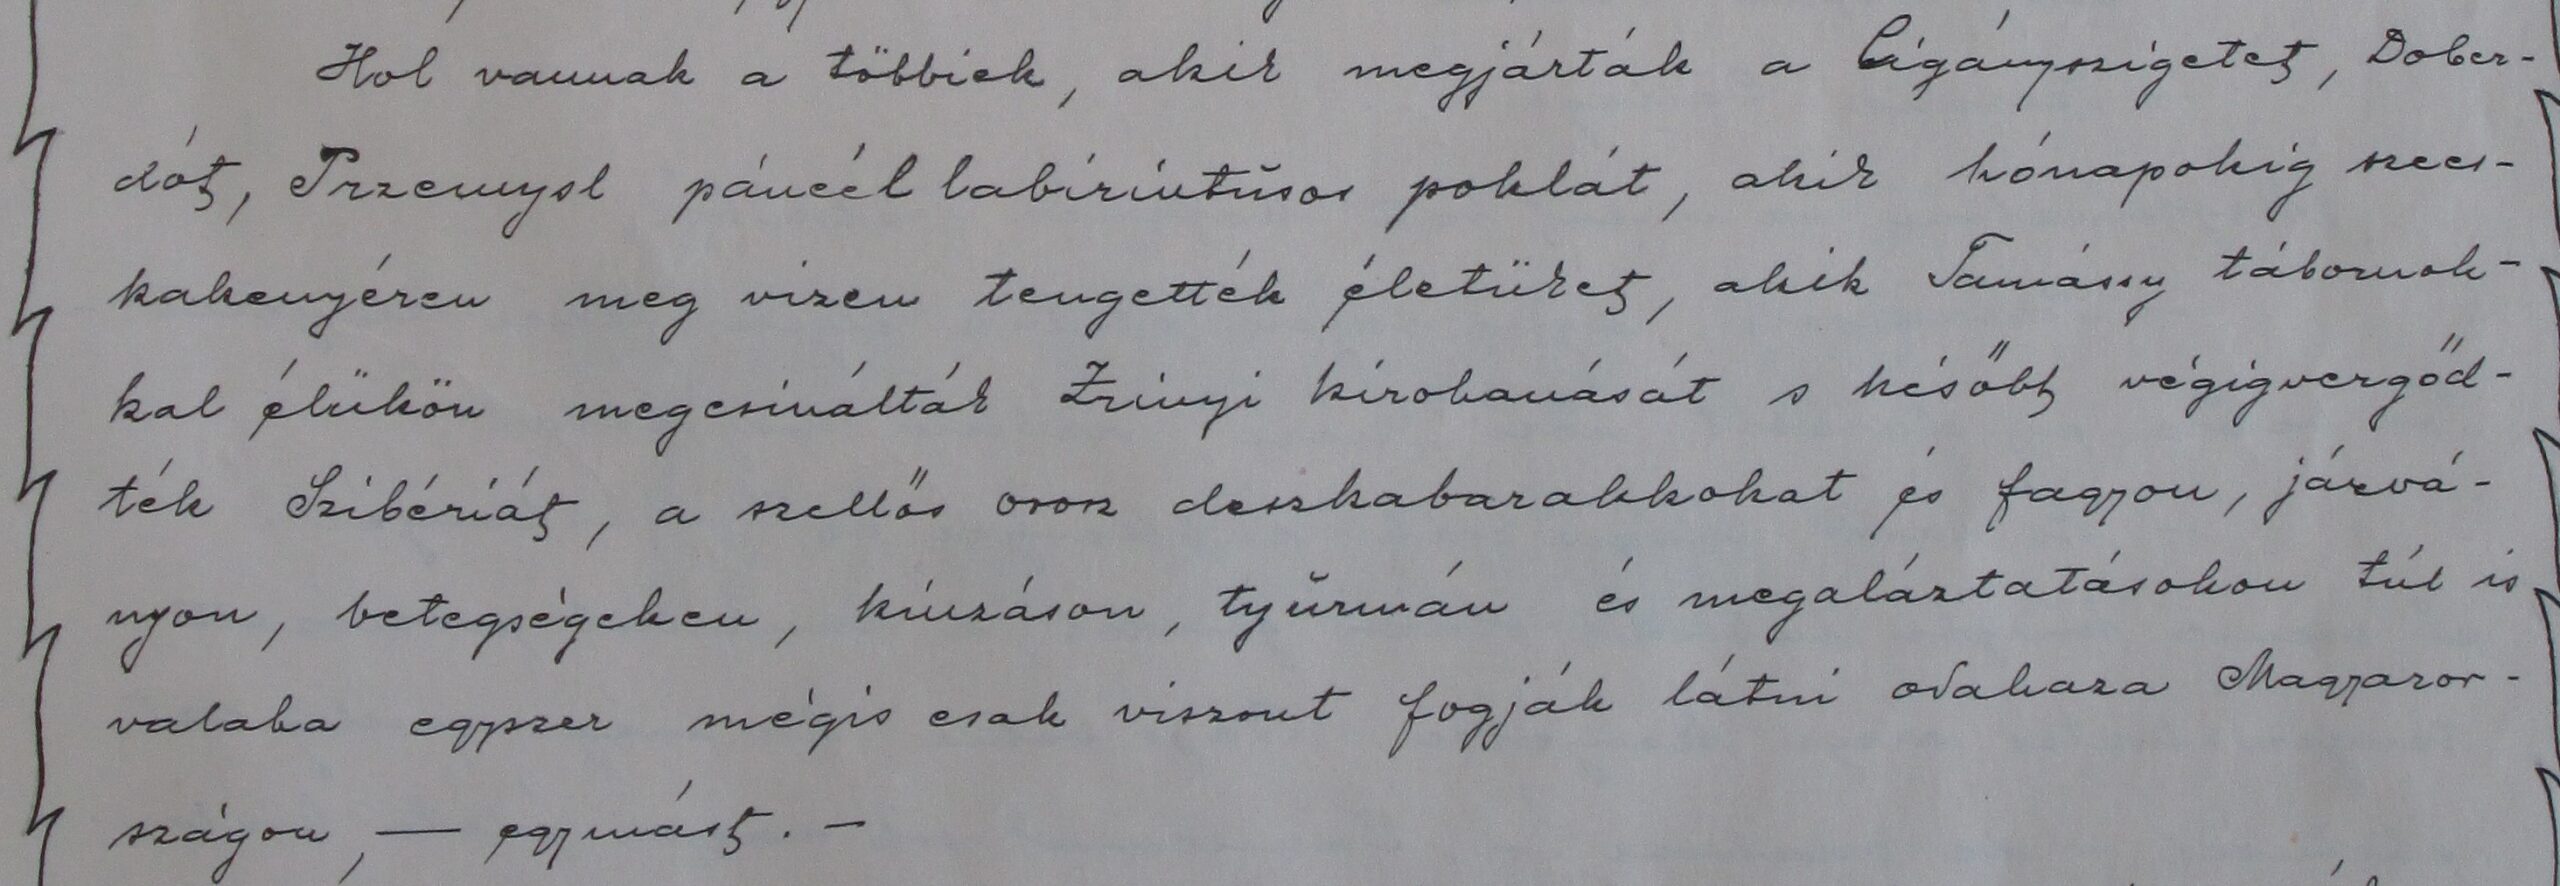 Hol vannak a többiek, akik megjárták a Cigányszigetet, Dober-
dót, Przemysl páncél labirintusos poklát, akik hónapokig szecs-
kakenyéren meg vizen tengették életüket, akik Tamássy tábornok-
kal élükön megcsinálták Zrinyi kirohanását s később végigvergőd-
ték Szibériát, a szellős orosz deszkabarakkokat és fagyon, járvá-
nyon, betegségeken, kínzáson, tyúrmán és megaláztatásokon túl is
valaha egyszer mégis csak viszont fogják látni odahaza Magyaror-
szágon, — egymást. —